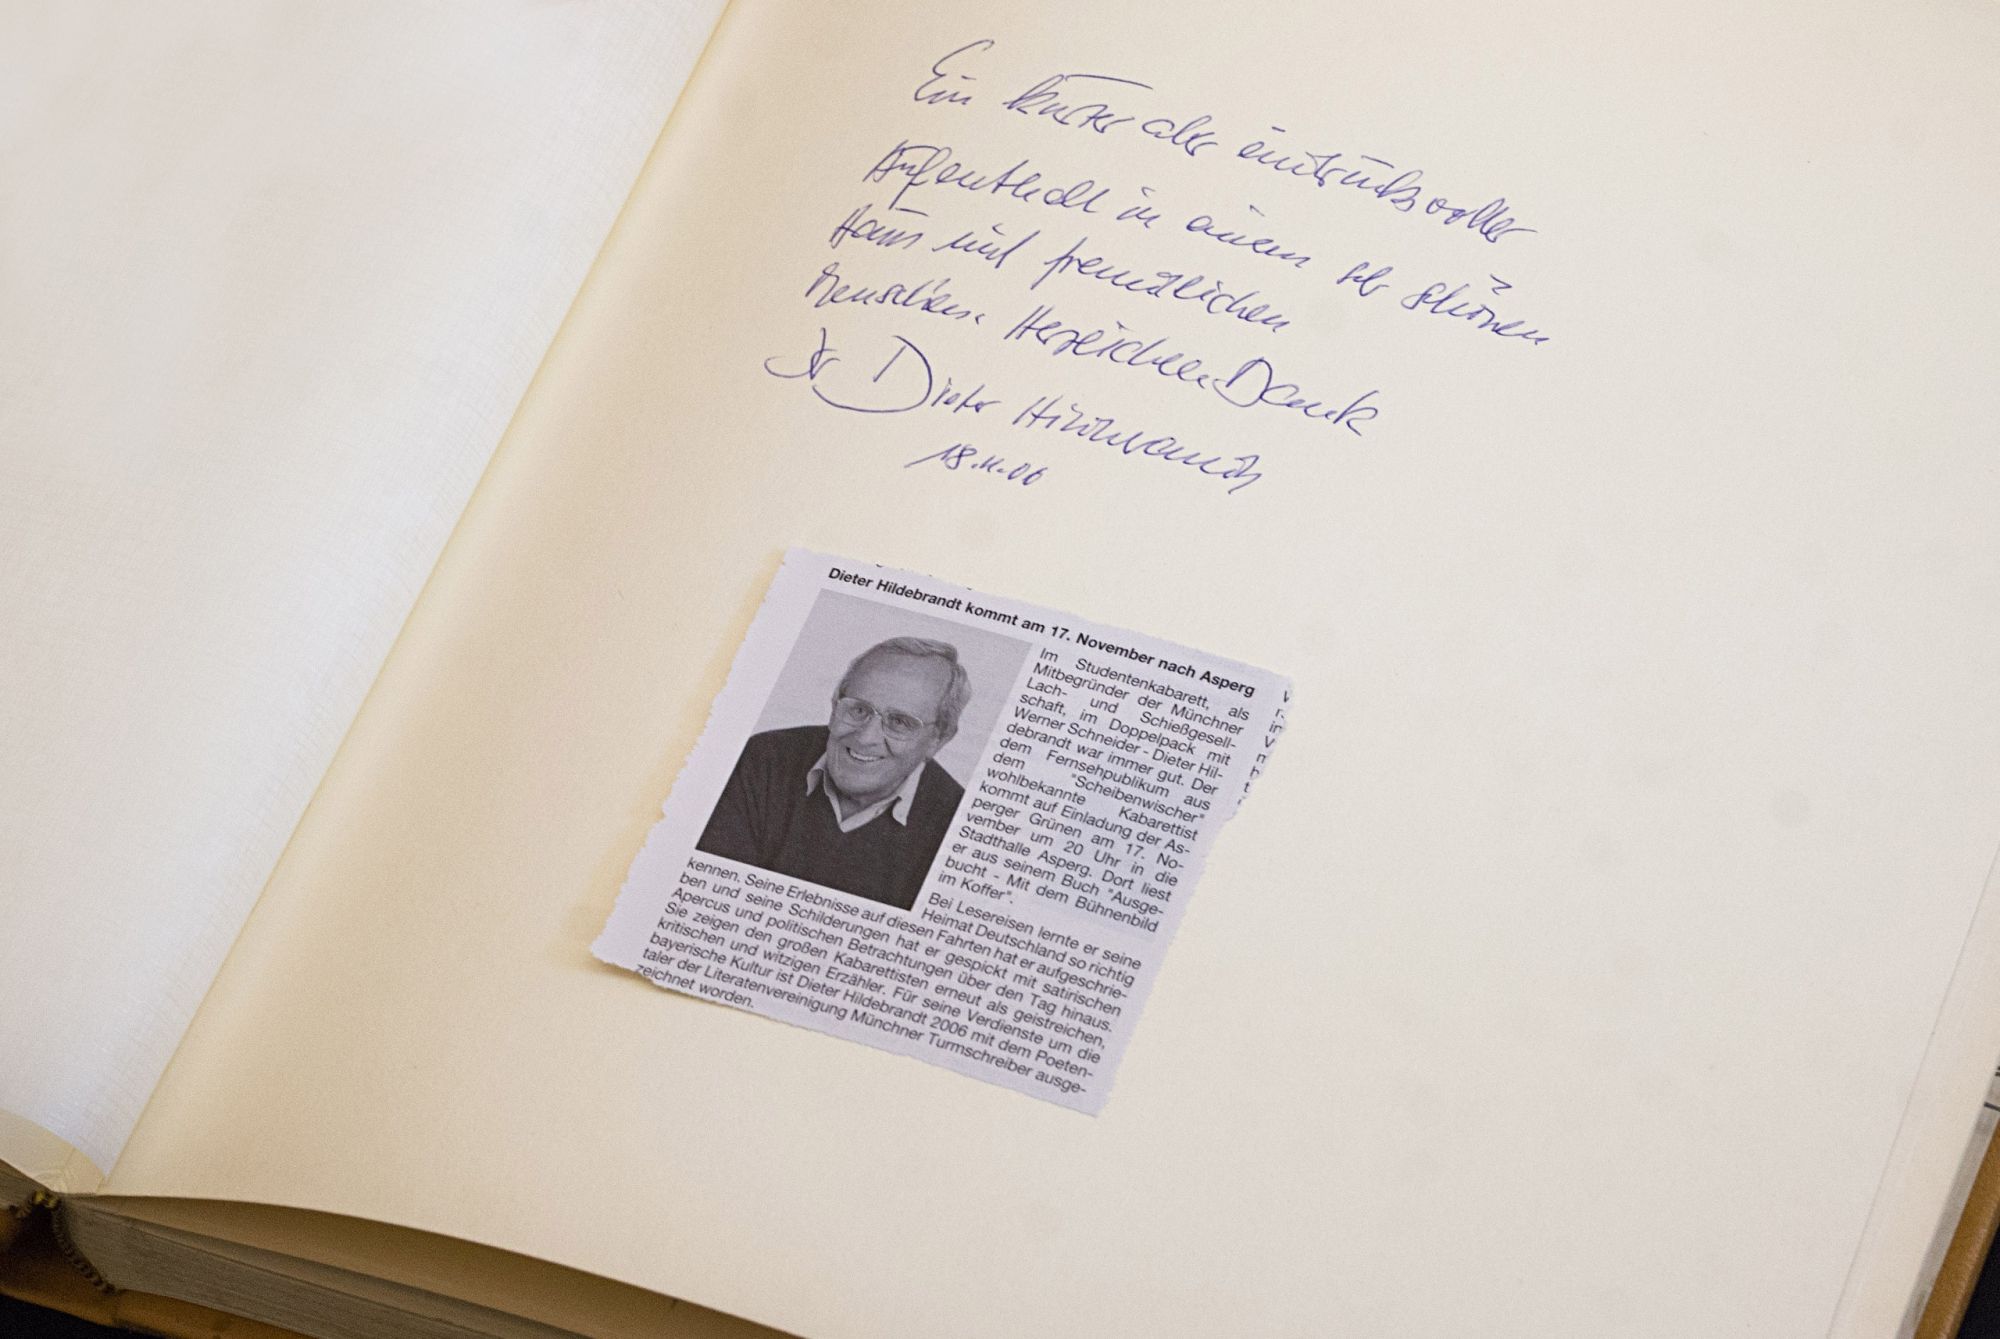 Ein kurzer aber eindrucksvoller
Aufenthalt in einem so schönen
Haus und freundlichen
Menschen. Herzlichen Dank
Ihr Dieter Hildebrandt
18.11.06
Dieter Hildebrandt kommt am 17. November nach Asperg
Im Studentenkabarett, als
Mitbegründer der Münchner
Lach- und Schießgesell-
schaft, im Doppelpack mit
Werner Schneider - Dieter Hil-
debrandt war immer gut. Der
dem Fernsehpublikum aus
dem "Scheibenwischer"
wohlbekannte Kabarettist
kommt auf Einladung der As-
perger Grünen am 17. No-
vember um 20 Uhr in die
Stadthalle Asperg. Dort liest
er aus seinem Buch "Ausge-
bucht - Mit dem Bühnenbild
im Koffer".
Bei Lesereisen lernte er seine
Heimat Deutschland so richtig
kennen. Seine Erlebnisse auf diesen Fahrten hat er aufgeschrie-
ben und seine Schilderungen hat er gespickt mit satirischen
Apercus und politischen Betrachtungen über den Tag hinaus.
Sie zeigen den großen Kabarettisten erneut als geistreichen,
kritischen und witzigen Erzähler. Für seine Verdienste um die
bayerische Kultur ist Dieter Hildebrandt 2006 mit dem Poeten-
taler der Literatenvereinigung Münchner Turmschreiber ausge-
zeichnet worden.